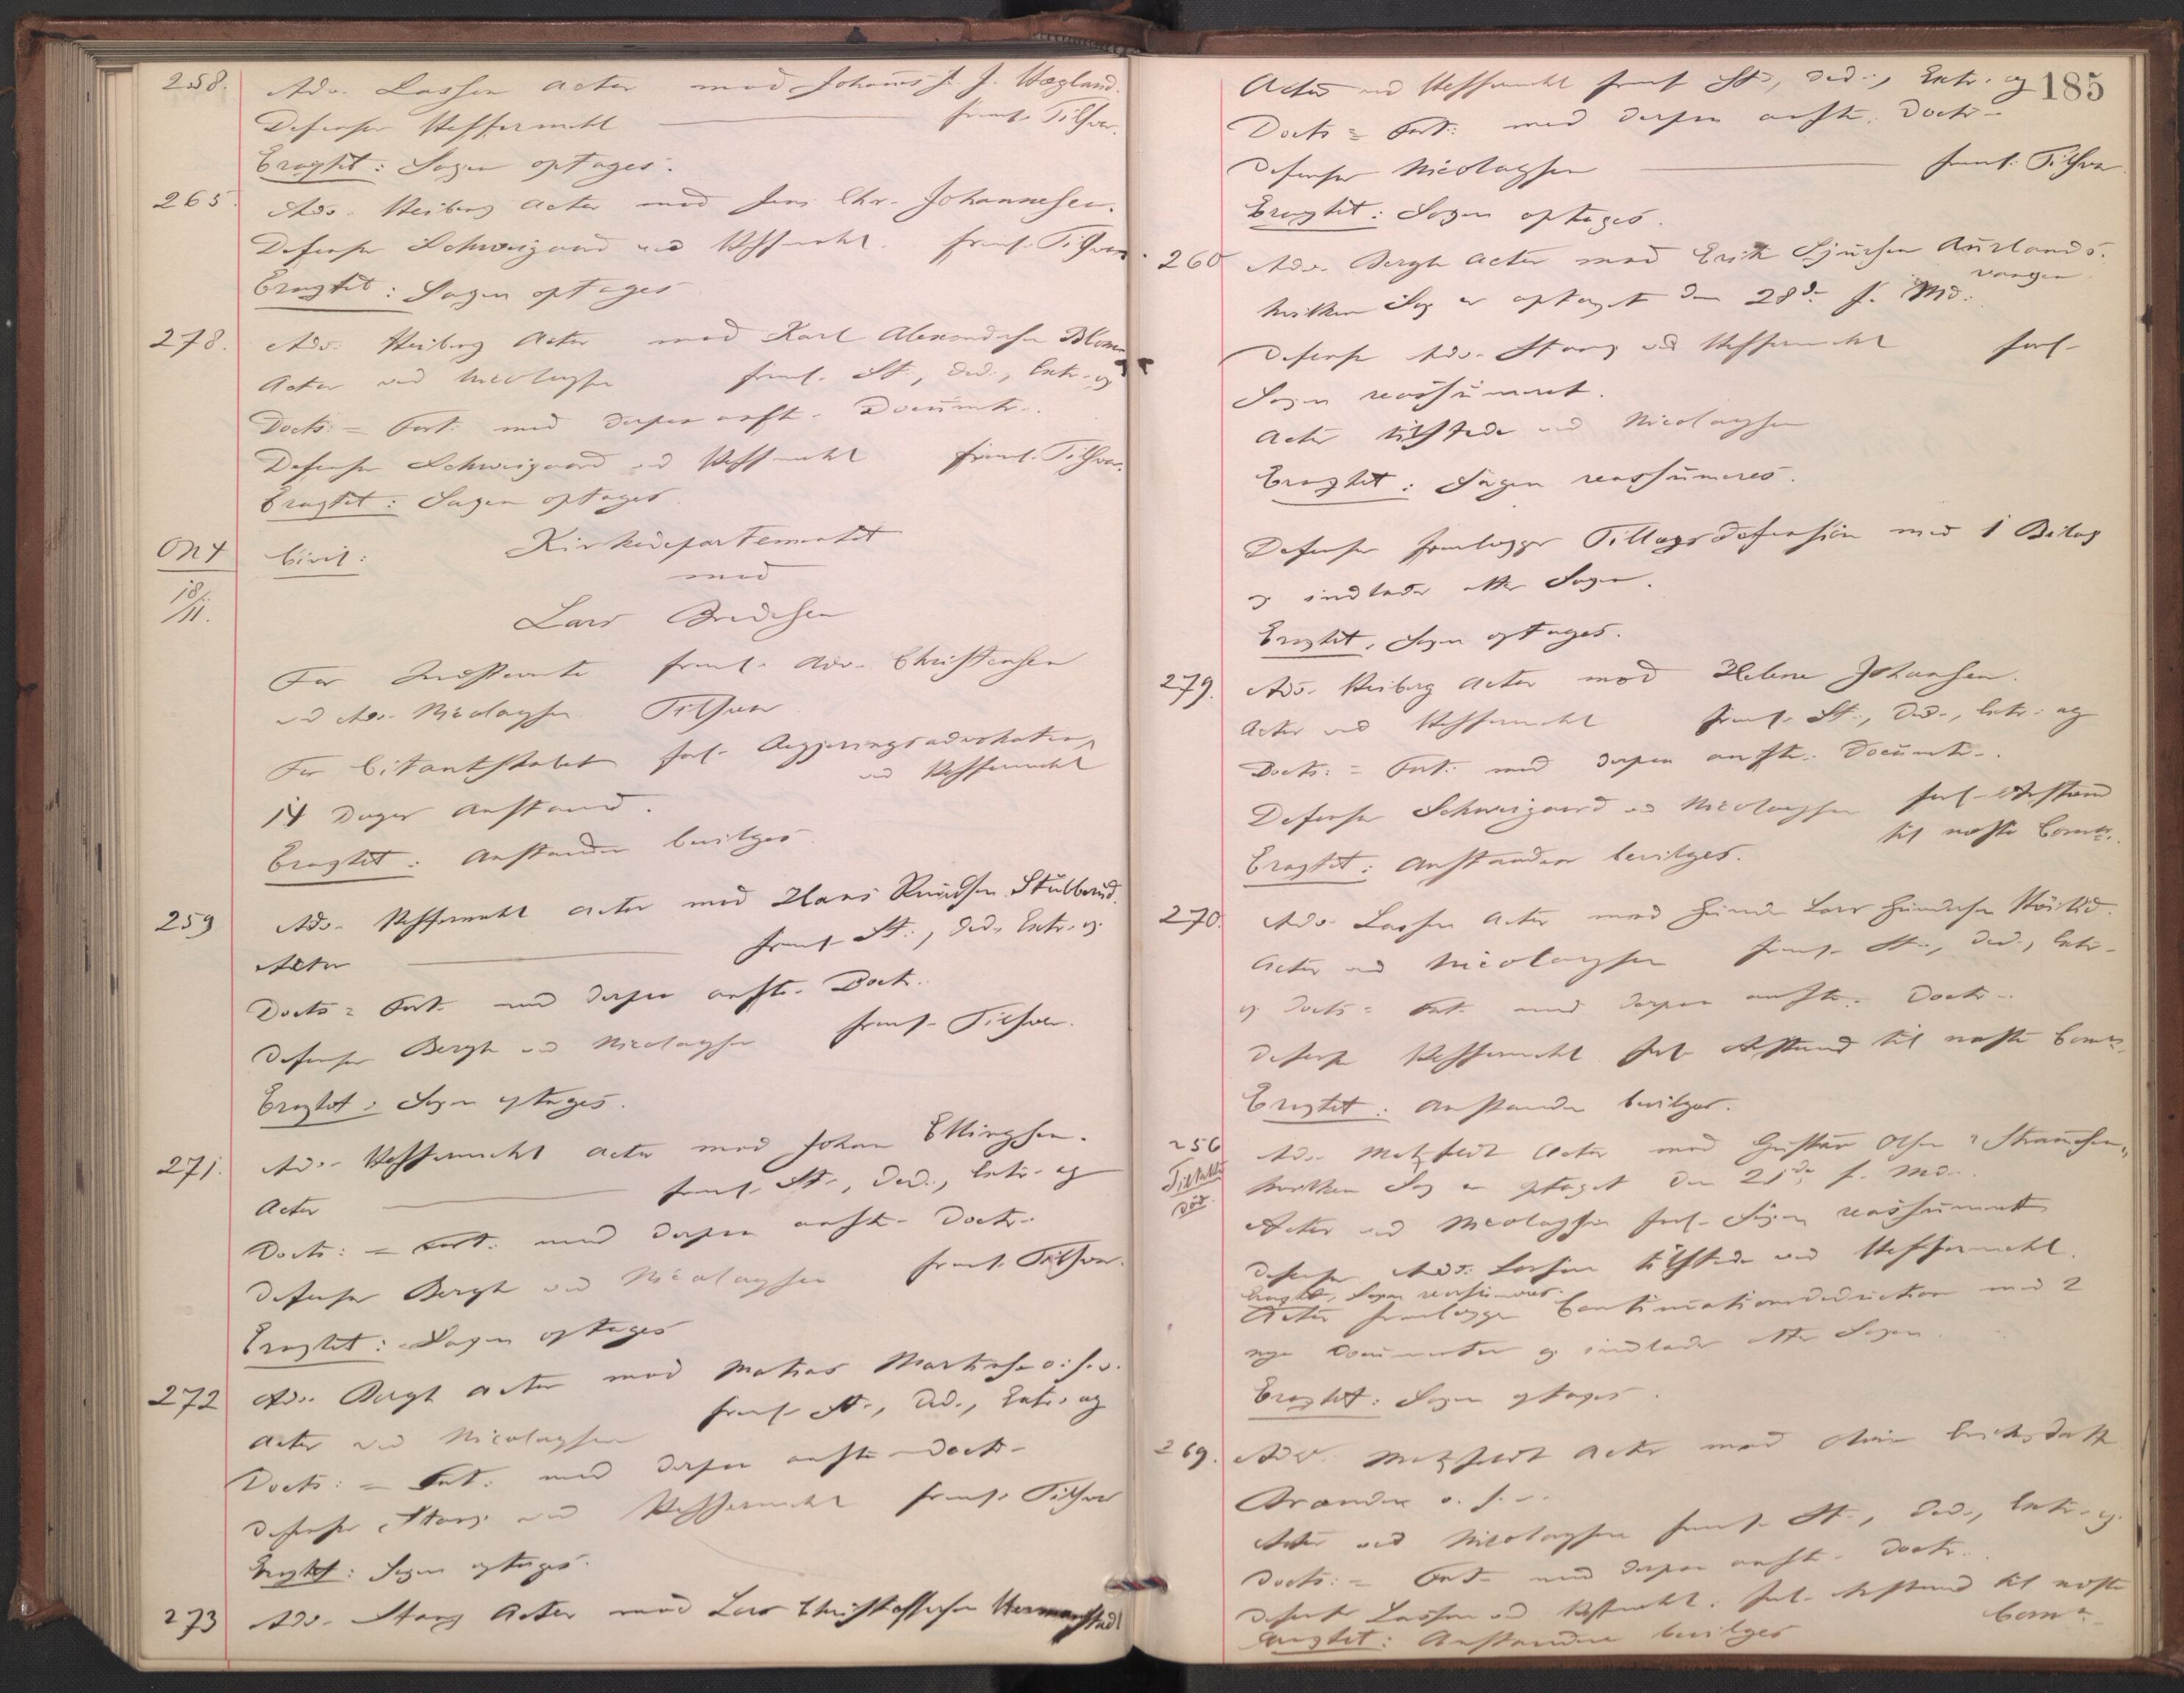 258. Adv. Lassen Actor mod Johannes J. J. Hægland.
Defensor Heffermehl freml. Tilsvar.
Eragtet: Sagen optages.
265. Adv. Heiberg Actor mod Jens Chr. Johannesen.
Defensor Schweigaard ved Heffermehl. freml. Tilsvar
Eragtet: Sagen optages
278. Adv. Heiberg Actor mod Karl Alexandersen Blom
Actor ved Nicolaysen freml. St:, Ded:, Extr. og
Docts: = Fort: med derpaa anfte. Documtr.
Defensor Schweigaard ved Heffermehl freml. Tilsvar.
Eragtet: Sagen optages
Civil: Kirkedepartementet
mod
18/11. Lars Bredesen
For Indstevnte freml. Adv. Christensen
ved Adv. Nicolaysen Tilsvar
For Citantskabet forl. Regjeringsadvokaten
ved Heffermehl
14 Dages Anstand.
Eragtet: Anstanden bevilges
259 Adv. Heffermehl Actor mod Hans Knudsen Stulberud.
Actor freml. St:, Ded., Extr. og
Docts = Fort. med derpaa anfte. Doct.
Defensor Bergh ved Nicolaysen freml. Tilsvar.
Eragtet: Sagen optages.
271. Adv. Heffermehl Actor mod Johan Ellingsen.
Actor freml. St., Ded., Extr. og
Docts: = Fort: med derpaa anfte. Doctr.
Defensor Bergh ved Nicolaysen freml. Tilsvar.
Eragtet: Sagen optages
272 Adv. Bergh Actor mod Matias Martinsen o. s. v.
Actor ved Nicolaysen freml. St., Ded., Extr. og
Docts: = Fort: med derpaa anfte Doctr.
Defensor Stang ved Heffermehl freml. Tilsvar
Eragtet: Sagen optages.
273 Adv. Stang Actor mod Lars Christoffersen Hermanstad
185
Actor ved Heffermehl freml. St:, Ded:, Extr. og
Docts = Fort: med derpaa anfte. Doctr.
Defensor Nicolaysen freml. Tilsvar
Eragtet: Sagen optages.
260 Adv. Bergh Actor mod Erik Sjursen Aurlands-
vangen
hvilken Sag er optaget den 28de f. Md.
Defensor Adv. Stang ved Heffermehl forl.
Sagen reassumeret.
Actor tilstede ved Nicolaysen
Eragtet: Sagen reassumeres.
Defensor fremlægger Tillægsdefension med 1 Bilag
og indlader atter Sagen.
Eragtet, Sagen optages.
279. Adv. Heiberg Actor mod Helene Johansen.
Actor ved Heffermehl freml. St:, Ded., Extr. og
Docts: = Fort: med derpaa anfte. Documtr.
Defensor Schweigaard ved Nicolaysen forl. Anstand
til næste
Eragtet: Anstanden bevilges.
270. Adv. Lassen Actor mod Gunder Lars Gundersen
Actor ved Nicolaysen freml. St., Ded., Extr.
og Docts = Fort. med derpaa anfte. Doctr.
Defensor Heffermehl forl. Anstand til næste
Eragtet: Anstanden bevilges.
256 Adv. Metzfeldt Actor mod Gustav Olsen "Stranden"
Tiltalte
død.
hvilken Sag er optaget den 21de f. Md.
Actor ved Nicolaysen forl. Sagen reassumeret
Defensor Adv. Lassen tilstede ved Heffermehl.
Eragtet, Sagen reassumeres.
Actor fremlægger Continuationsdeduction med 2
nye Documenter og indlader atter Sagen.
Eragtet: Sagen optages.
269. Adv. Metzfeldt Actor mod Oline Eriksdatter
o. s. v.
Actor ved Nicolaysen freml. St., Ded., Extr. og
Docts: = Fort. med derpaa anfte. Doctr.
Defensor Lassen ved Heffermehl. forl. Anstand til næste
Eragtet: Anstanden bevilges